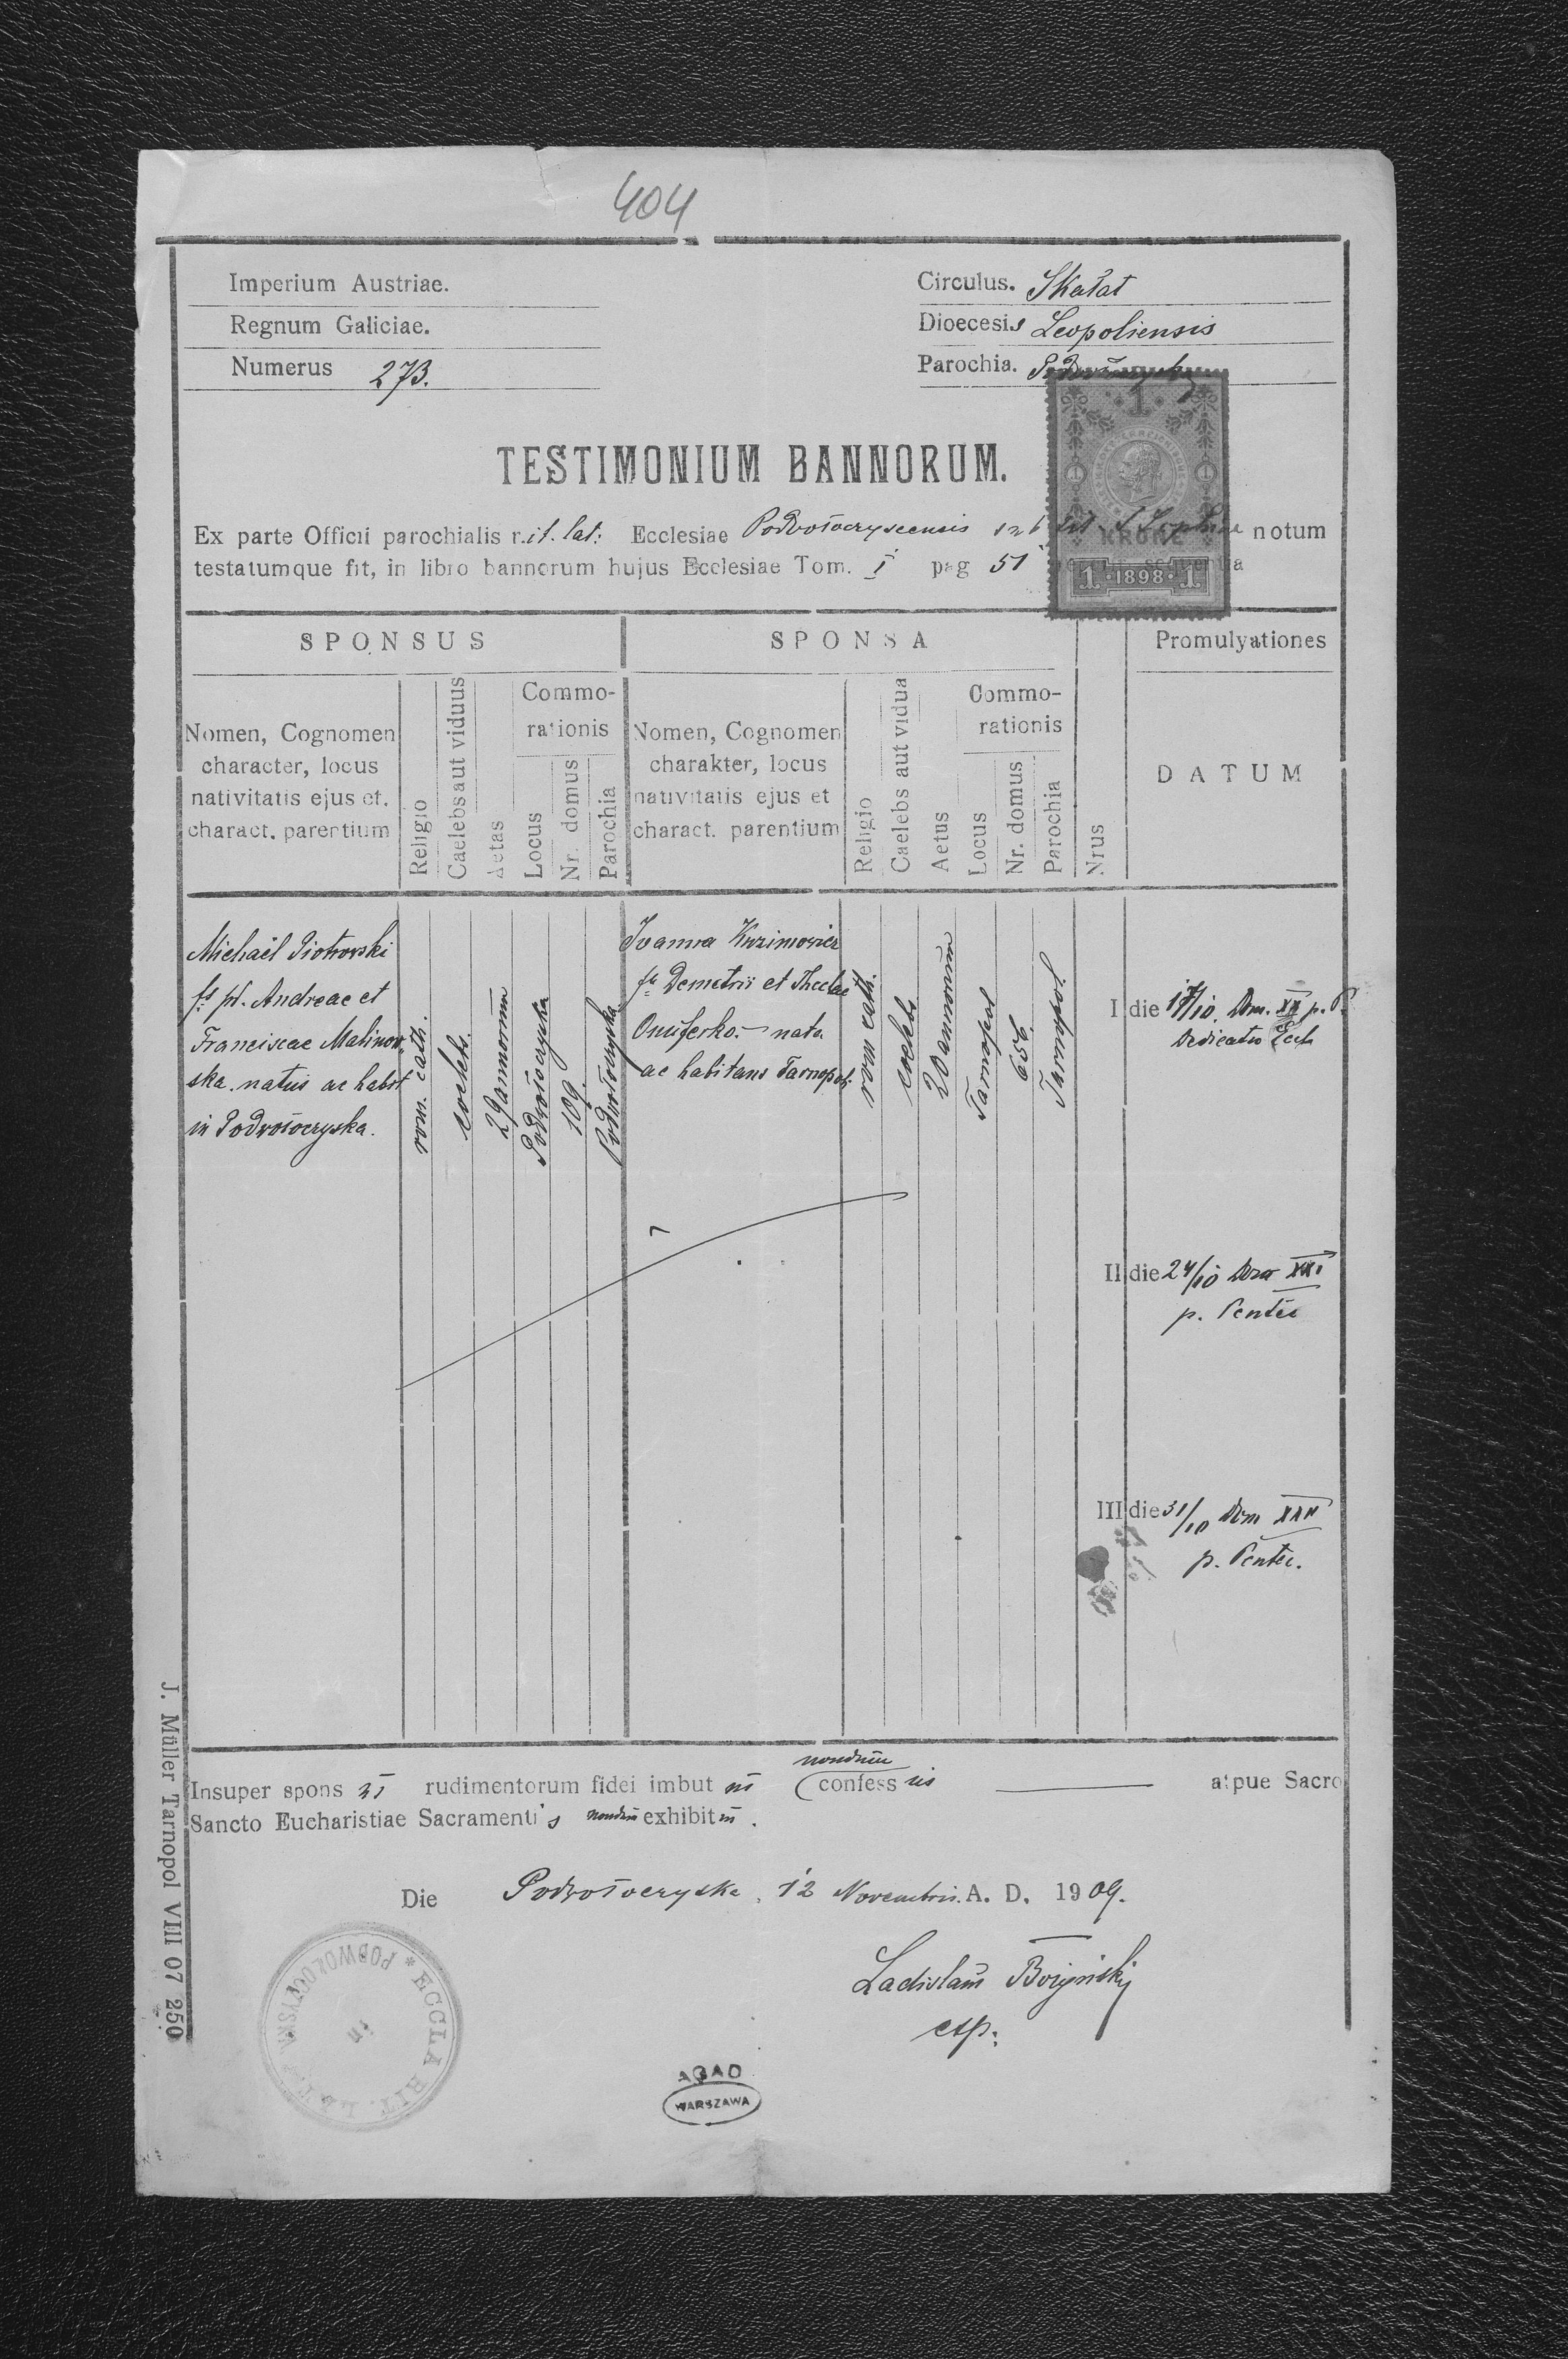 404
Imperium Austriae.
Regnum Galiciae.
Numerus 273.
Circulus. Skałat
Dioecesis Leopoliensis
Parochia.
TESTIMONIUM BANNORUM.
Ex parte Officii parochialis r.it. lat: Ecclesiae Podwołoczyscensis sub tit. S. notum
testatumque fit, in libro bannorum hujus Ecclesiae Tom. I pag 51
1
KRONE
1 · 1898 · 1
SPONSUS
SPONSA
Promulyationes
Nomen, Cognomen
character, locus
nativitatis ejus et.
charact. parentium
Religio
Caelebs aut viduus
Aetas
Commo-
rationis
Locus
Nr. domus
Parochia
Nomen, Cognomen
charakter, locus
nativitatis ejus et
charact. parentium
Religio
Caelebs aut vidua
Aetus
Commo-
rationis
Locus
Nr. domus
Parochia
Nrus
DATUM
Michaël Piotrowski
fs pt. Andreae et
Franciscae Malinow-
ska. natus ac habit
in Podwołoczyska.
rom. cath.
coelebs.
29 annorum
Podwołoczyska
109.
Podwołoczyska
Ivanna Kuzimowicz
fa Demetrii et Theclae
Onuferko. - nata
ac habitans Tarnopol.
rom cath.
coelebs
20 annorum
Tarnopol
656.
Tarnopol.
I die 17/10. Dom. XX p. P.
Dedicatio Eccl.
II die 24/10 Dom XXI
p. Pentec
III die 31/10 Dom XXII
p. Pentec.
Insuper spons rudimentorum fidei imbut nondum confess is atpue Sacro
Sancto Eucharistiae Sacramenti s nondum exhibit .
Die Podwołoczyska, 12 Novembris. A. D. 1909.
Ladislaus
exp.
* ECCLA RIT. LAT. PODWOŁOCZYSKA
in
AGAD
WARSZAWA
J. Müller Tarnopol VIII 07 250